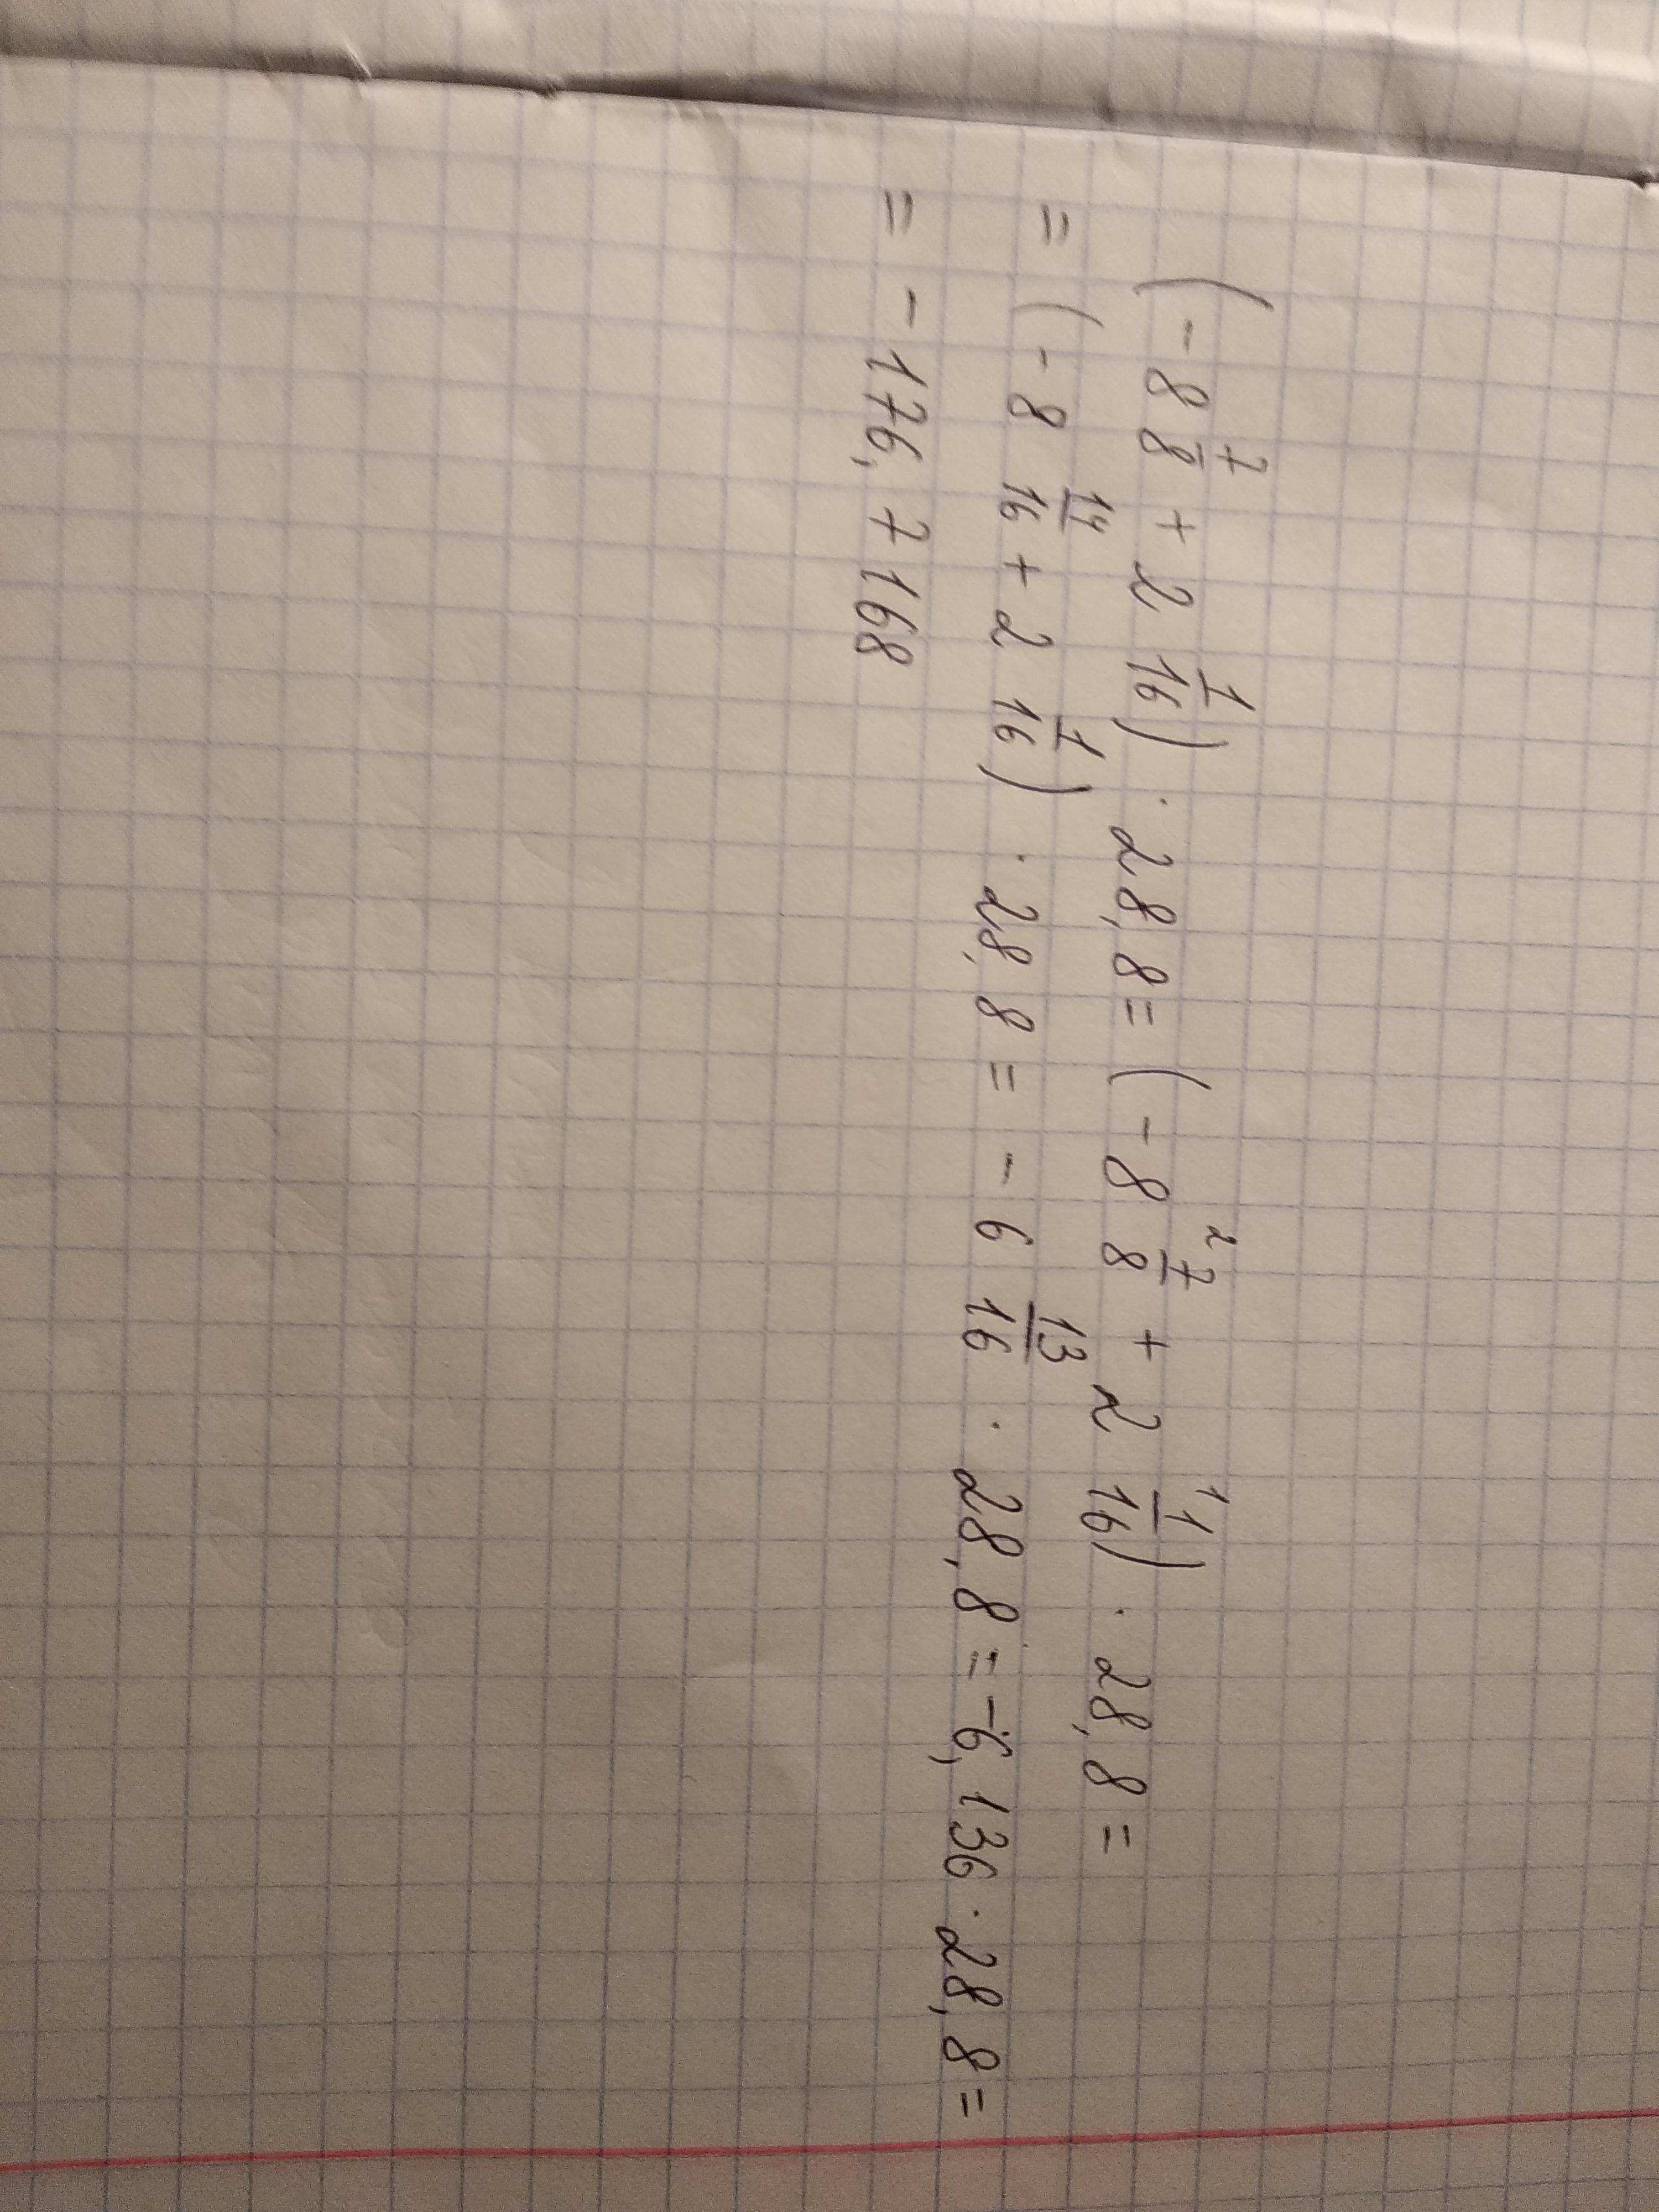 (-8 7/8 + 2 1/16) · 28,8 = (-8 ²7/8 + 2 ¹1/16) · 28,8 =
= (-8 14/16 + 2 1/16) · 28,8 = - 6 13/16 · 28,8 = -6,136 · 28,8 =
= - 176,7168